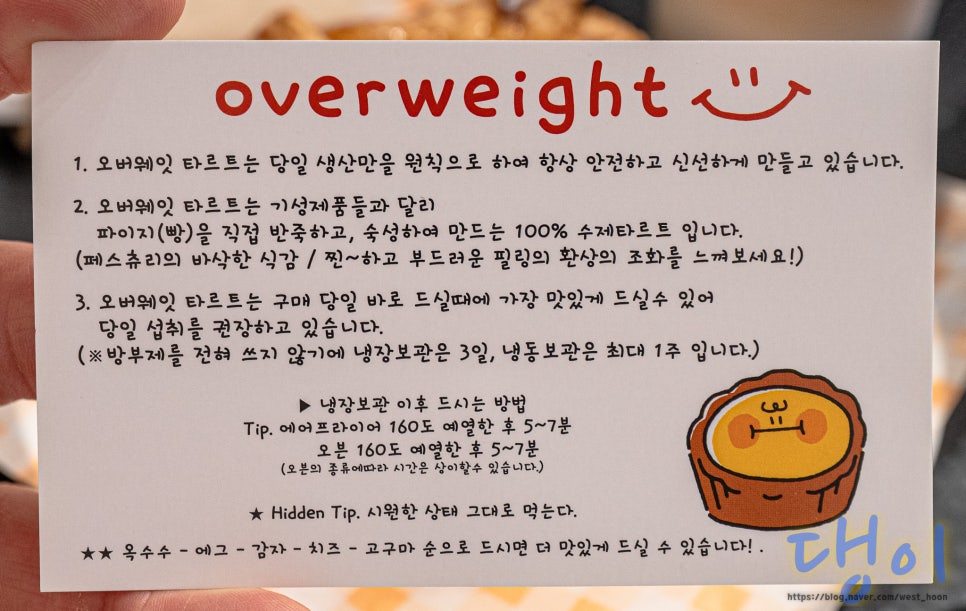 overweight
1. 오버웨잇 타르트는 당일 생산만을 원칙으로 하여 항상 안전하고 신선하게 만들고 있습니다.
2. 오버웨잇 타르트는 기성제품들과 달리
파이지(빵)을 직접 반죽하고, 숙성하여 만드는 100% 수제타르트 입니다.
(페스츄리의 바삭한 식감 / 찐~하고 부드러운 필링의 환상의 조화를 느껴보세요!)
3. 오버웨잇 타르트는 구매 당일 바로 드실때에 가장 맛있게 드실수 있어
당일 섭취를 권장하고 있습니다.
(※방부제를 전혀 쓰지 않기에 냉장보관은 3일, 냉동보관은 최대 1주 입니다.)
▶ 냉장보관 이후 드시는 방법
Tip. 에어프라이어 160도 예열한 후 5~7분
오븐 160도 예열한 후 5~7분
(오븐의 종류에따라 시간은 상이할수 있습니다.)
★ Hidden Tip. 시원한 상태 그대로 먹는다.
★★ 옥수수 - 에그 - 감자 - 치즈 - 고구마 순으로 드시면 더 맛있게 드실 수 있습니다! .
댕이
https://blog.naver.com/west_hoon